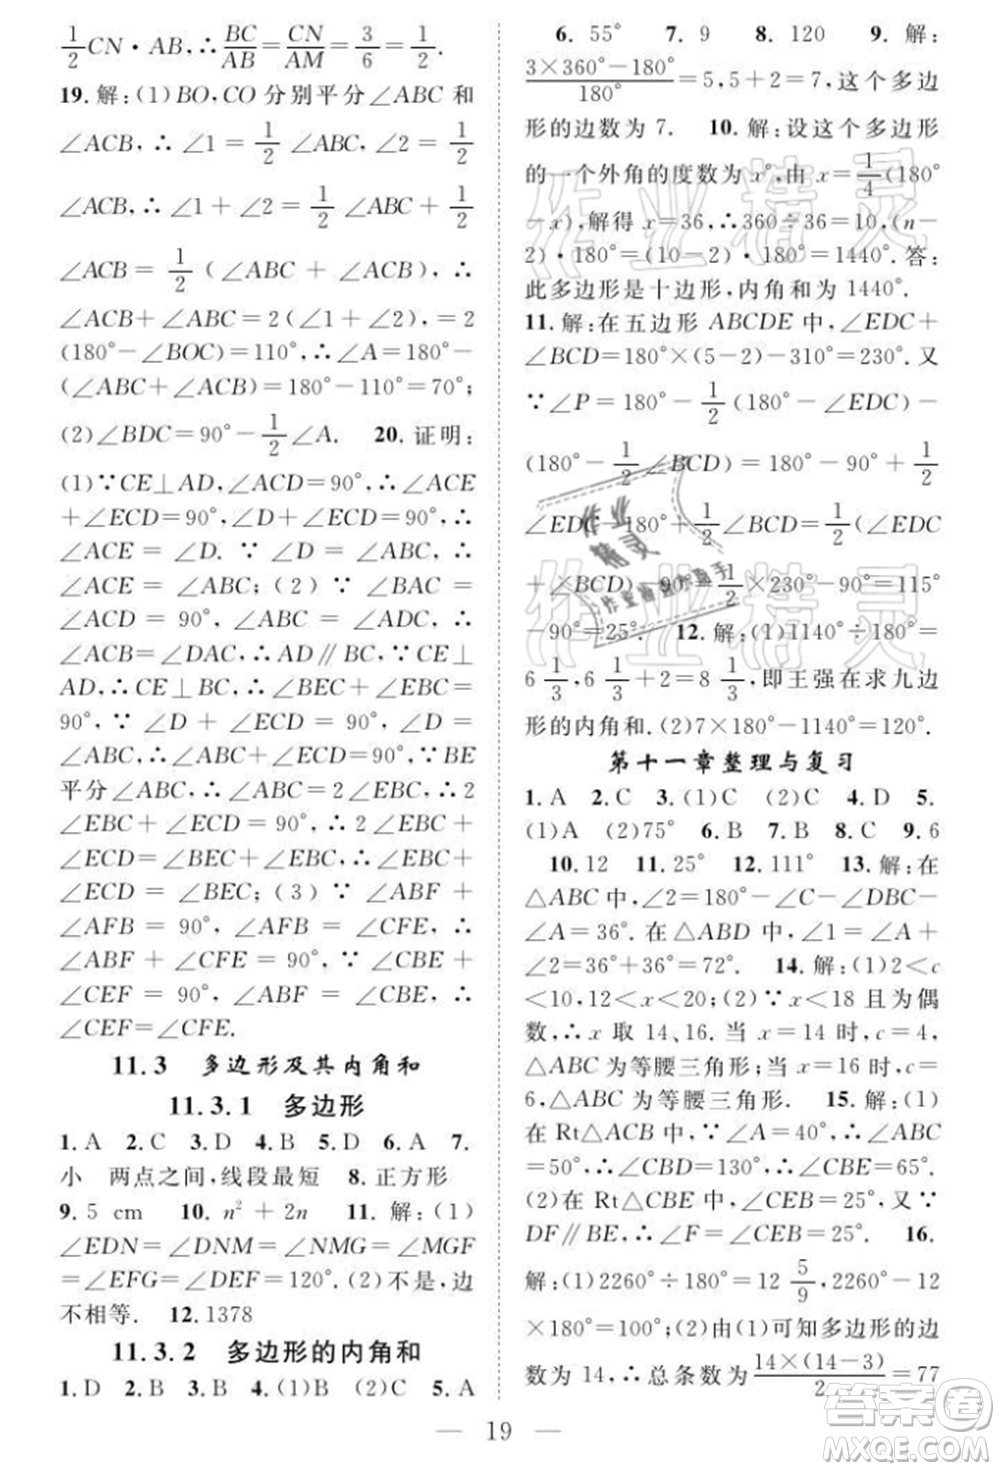 1/2 CN·AB,∴ BC/AB = CN/AM = 3/6 = 1/2.
19.解:(1)BO,CO 分别平分∠ABC 和
∠ACB,∴ ∠1 = 1/2 ∠ABC,∠2 = 1/2
∠ACB,∴∠1+∠2= 1/2 ∠ABC+ 1/2
∠ACB = 1/2 (∠ABC + ∠ACB),∴
∠ACB+∠ABC=2(∠1+∠2),=2
(180°-∠BOC)=110°,∴∠A=180°-
(∠ABC+∠ACB)=180°-110°=70°;
(2)∠BDC=90°- 1/2 ∠A. 20.证明:
(1)∵CE⊥AD,∠ACD=90°,∴∠ACE
+∠ECD=90°,∠D+∠ECD=90°,∴
∠ACE = ∠D. ∵ ∠D = ∠ABC, ∴
∠ACE = ∠ABC; (2) ∵ ∠BAC =
∠D, ∠D = ∠ABC, ∠DAC, ∴
∠ABC=∠DAC,∴AD∥BC,∵CE⊥
AD,∴CE⊥BC,∴∠BEC+∠EBC=
90°, ∵ ∠D + ∠ECD = 90°, ∴
∠ABC+∠ECD=90°,∵BE
平分∠ABC,∴∠ABC=2∠EBC,∴2
∠EBC+∠ECD=90°,∴2
∠EBC+∠ECD=∠BEC+∠EBC,
∠EBC + ∠ECD = ∠BEC,∴∠EBC+
∠ECD = ∠BEC; (3) ∵ ∠ABF +
∠AFB = 90°, ∠AFB = ∠CFE, ∴
∠ABF + ∠CFE = 90°, ∵ ∠CBE +
∠CEF = 90°, ∠ABF = ∠CBE, ∴
∠CEF=∠CFE.
11.3 多边形及其内角和
11.3.1 多边形
1.A 2.C 3.D 4.B 5.D 6.A 7.
小 两点之间,线段最短 8.正方形
9.5 cm 10.n²+2n 11.解:(1)
∠EDN=∠DNM=∠NMG=∠MGF
=∠EFG=∠DEF=120°.(2)不是,边
不相等. 12.1378
11.3.2 多边形的内角和
1.D 2.B 3.C 4.(1)B (2)C 5.A
6.55° 7.9 8.120 9.解:
(3×360°-180°)/180° =5,5+2=7,这个多边
形的边数为 7. 10.解:设这个多边形
的一个外角的度数为 x°,由 x= 1/4 (180°
-x),解得 x=36,∴360÷36=10,(n-
2)·180°=(10-2)·180°=1440°.答:
此多边形是十边形,内角和为 1440°.
11.解:在五边形 ABCDE 中,∠EDC+
∠BCD=180°×(5-2)-310°=230°.又
∵∠P=180°- 1/2 (180°-∠EDC)-
(180°- 1/2 ∠BCD)=180°-90°+ 1/2
∠EDC-180°+ 1/2 ∠BCD= 1/2 (∠EDC
+∠BCD)-90°= 1/2 ×230°-90°=115°
-90°=25°. 12.解:(1)1140°÷180°=
6 1/3,6 1/3 +2=8 1/3,即王强在求九边
形的内角和.(2)7×180°-1140°=120°.
第十一章整理与复习
1.A 2.C 3.(1)C (2)C 4.D 5.
(1)A (2)75° 6.B 7.B 8.C 9.6
10.12 11.25° 12.111° 13.解:在
△ABC 中,∠2=180°-∠ABC-∠1-
∠A=36°.在△ABD 中,∠1=∠A+
∠2=36°+36°=72°. 14.解:(1)2<c
<10,12<x<20;(2)∵x<18 且为偶
数,∴x 取 14、16.当 x=14 时,c=4,
△ABC 为等腰三角形;当 x=16 时,c=
6,△ABC 为等腰三角形. 15.解:(1)
在 Rt△ACB 中,∵∠A=40°,∴∠ABC
=50°,∴∠CBD=130°,∴∠CBE=65°.
(2)在 Rt△CBE 中,∠CEB=25°,又∵
DF∥BE,∴∠F=∠CEB=25°. 16.
解:(1)2260°÷180°=12 5/9,2260°-12
×180°=100°;(2)由(1)可知多边形的边
数为 14,∴总条数为 14×(14-3)/2 =77
19
作业精灵
作业精灵
作业精灵
答案圈
MXQE.COM